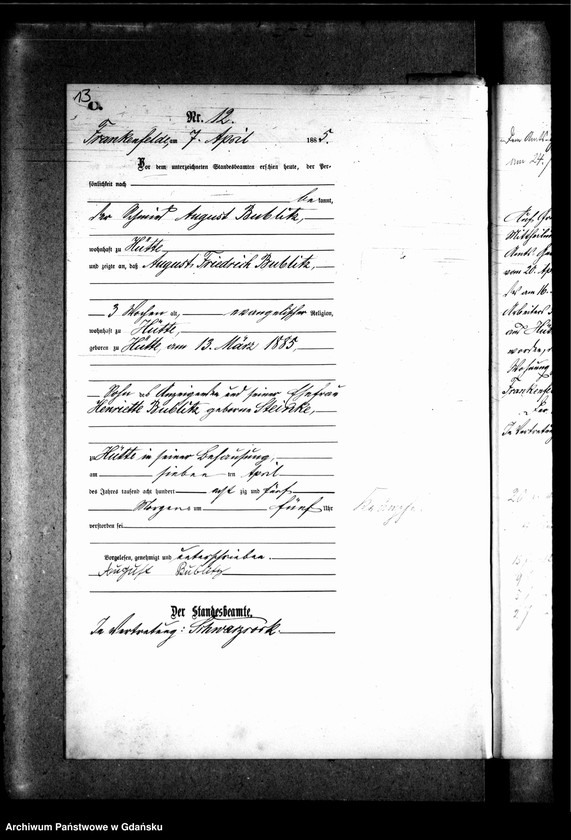 13
C.
Nr. 12.
Frankenfelde am 7. April 1885.
Vor dem unterzeichneten Standesbeamten erschien heute, der Per-
sönlichkeit nach
be kannt,
der Schmied August Bublitz,
wohnhaft zu Hütte
und zeigte an, daß August Friedrich Bublitz,
3 Wochen alt, evangelischer Religion,
wohnhaft zu Hütte,
geboren zu Hütte, am 13. März 1885,
Sohn des Anzeigenden und seiner Ehefrau
Henriette Bublitz geborne Steinke,
zu Hütte in seiner Behausung,
am sieben ten April
des Jahres tausend acht hundert acht zig und fünf
Morgens um fünf Uhr
verstorben sei.
Vorgelesen, genehmigt und unterschrieben.
August Bublitz
Der Standesbeamte.
In Vertretung: Schwarzrock.
am 24.
Mittheilun
vom 20. Ap
worden,
Wohnung
Frankenfel
In Vertretung
Archiwum Państwowe w Gdańsku